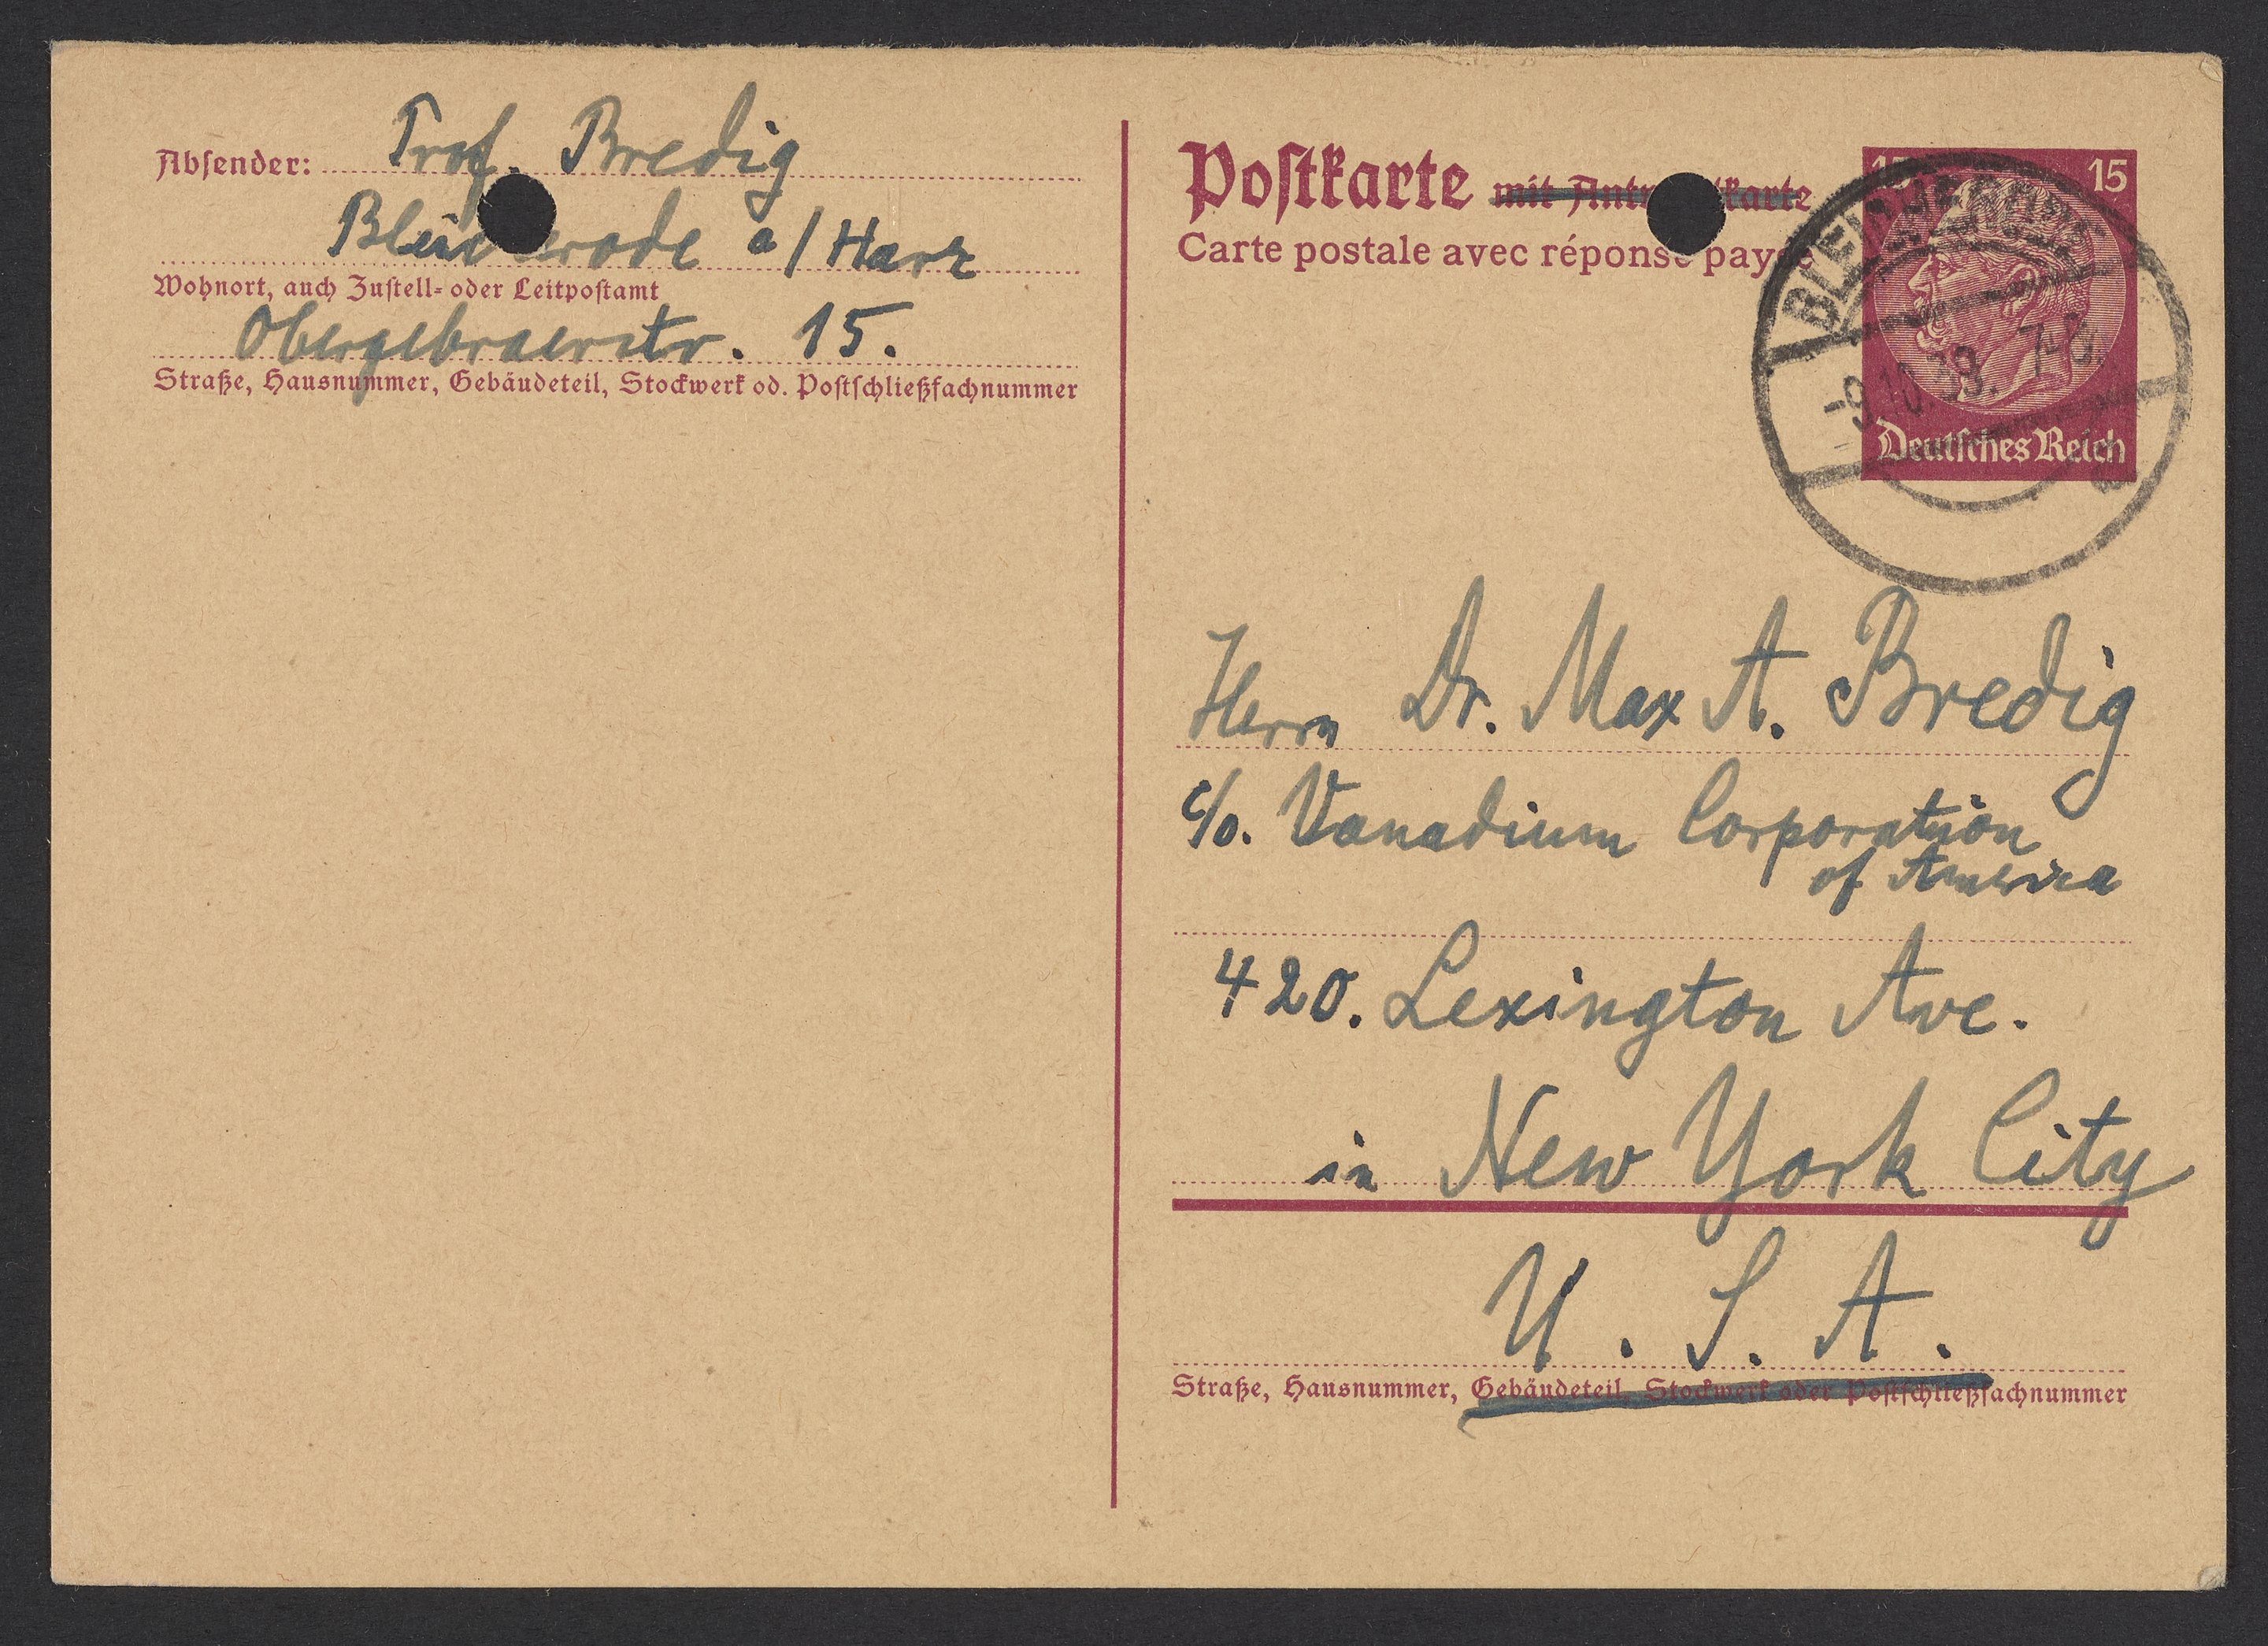 Absender: Prof. Bredig
a/Harz
Wohnort, auch Zustell- oder Leitpostamt
Obergebraerstr. 15.
Straße, Hausnummer, Gebäudeteil, Stockwerk od. Postschließfachnummer
Postkarte mit
Carte postale avec réponse payée
15
9.10.39. 7-8
Deutsches Reich
Herrn Dr. Max A. Bredig
c/o. Vanadium Corporation
of America
420. Lexington Ave.
in New York City
U. S. A.
Straße, Hausnummer, Gebäudeteil, Stockwerk oder Postschließfachnummer